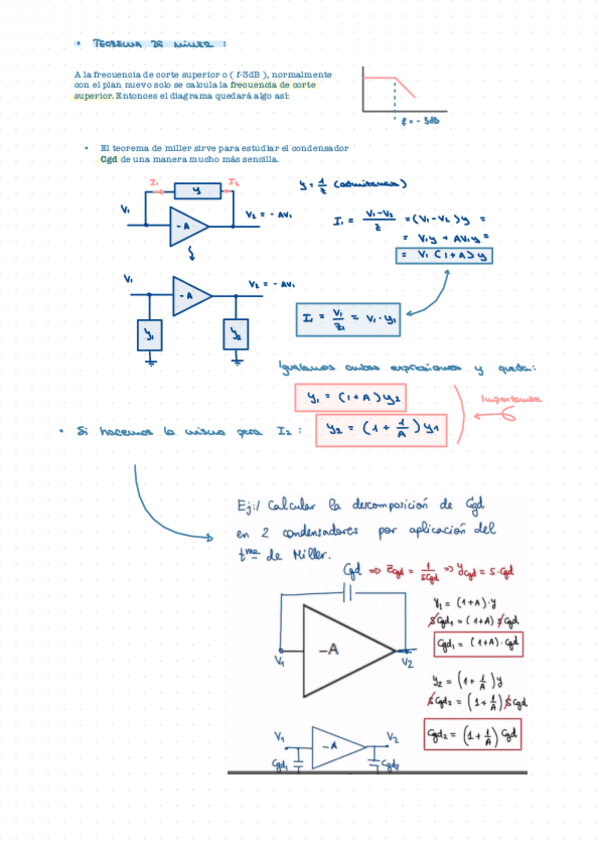 • TEOREMA DE MILLER :
A la frecuencia de corte superior o ( f-3dB ), normalmente
con el plan nuevo solo se calcula la frecuencia de corte
superior. Entonces el diagrama quedará algo así:
f = - 3db
• El teorema de miller sirve para estudiar el condensador
Cgd de una manera mucho más sencilla.
I₁ y I₂
V₁ -A V₂ = - AV₁
y = 1/z (admitancia)
I₁ = (V₁-V₂)/z = (V₁-V₂)y =
= V₁y + AV₁y =
= V₁ (1+A) y
V₁ -A V₂ = - AV₁
y₁ y₂
I₁ = V₁/z₁ = V₁ · y₁
Igualamos ambas expresiones y queda:
y₁ = (1+A) y₂
Importante
• Si hacemos lo mismo para I₂ :
y₂ = (1 + 1/A) y₁
Ej:/ Calcular la descomposición de Cgd
en 2 condensadores por aplicación del
tma de Miller.
Cgd ⇒ Zcgd = 1/sCgd ⇒ ycgd = s·Cgd
V₁ -A V₂
y₁ = (1+A)·y
sCgd₁ = (1+A) sCgd
Cgd₁ = (1+A)·Cgd
y₂ = (1 + 1/A) y
sCgd₂ = (1 + 1/A) sCgd
Cgd₂ = (1 + 1/A) Cgd
V₁ -A V₂
Cgd₁ Cgd₂